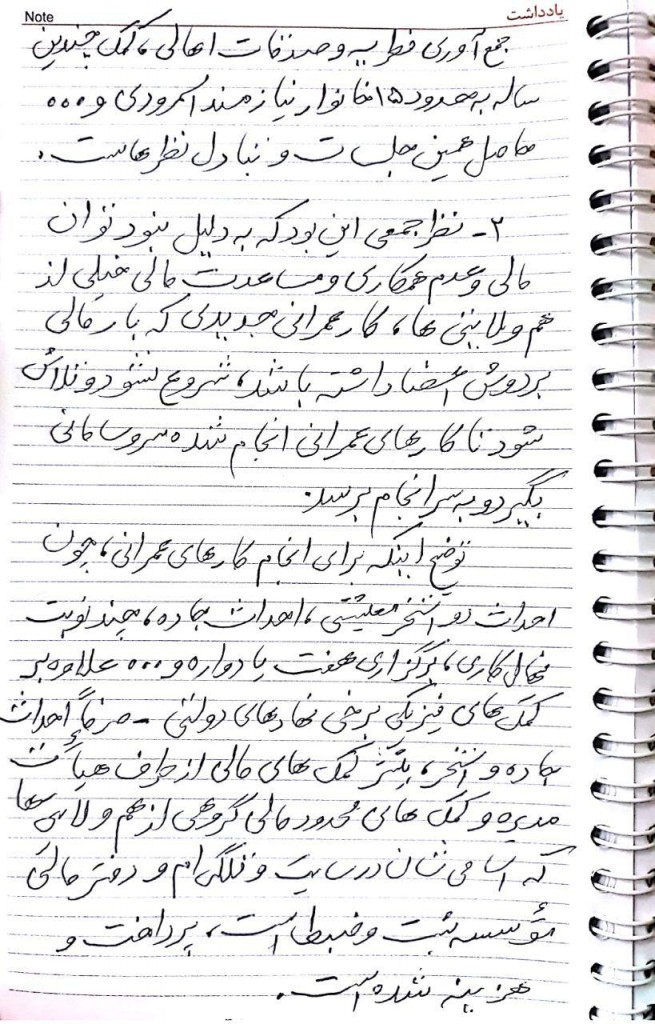 Note یادداشت
جمع آوری فطریه و صدقات اهالی، کمک چندین
ساله به حدود ۱۵ خانوار نیازمند اسمرودی و ...
حاصل همین جلسات و تبادل نظرهاست.
۲- نظر جمعی این بود که به دلیل نبود توان
مالی و عدم همکاری و مساعدت مالی خیلی از
هم ولایتی ها، کار عمرانی جدیدی که بار مالی
بر دوش اعضا داشته باشد، شروع نشود و تلاش
شود تا کارهای عمرانی انجام شده سر و سامانی
بگیرد و به سرانجام برسد.
توضیح اینکه برای انجام کارهای عمرانی، چون
احداث دو استخر معیشتی، احداث جاده، چند نوبت
نهال کاری، برگزاری هفت یادواره و ... علاوه بر
کمک های فیزیکی برخی نهادهای دولتی - صرفاً احداث
جاده و استخر، بیشتر کمک های مالی از طرف هیأت
مدیره و کمک های محدود مالی گروهی از هم ولایتی ها
که اسامی شان در سایت و تلگرام و دفتر مالی
مؤسسه ثبت و ضبط است، پرداخت و
هزینه شده است.